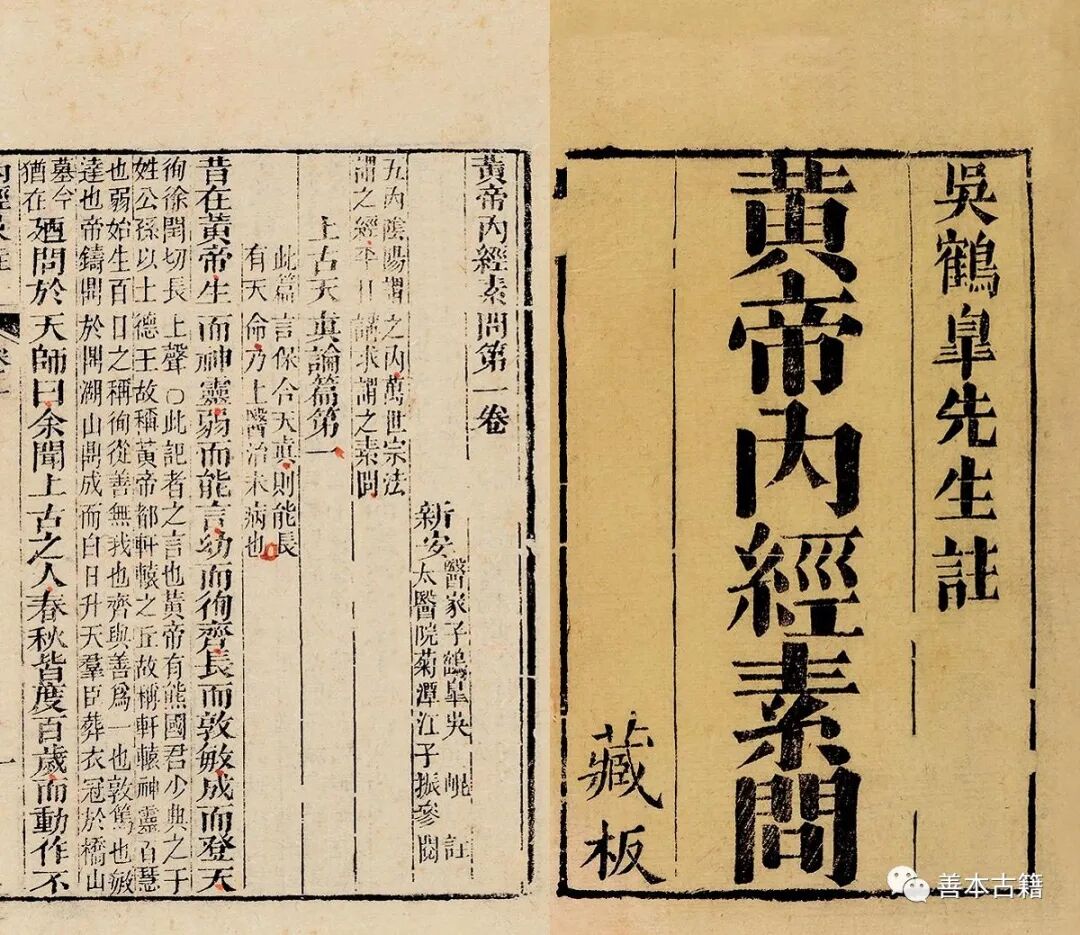 吳鶴臯先生註
黃帝內經素問
藏板
黃帝內經素問第一卷
新安
醫家子鶴臯吳崐註
太醫院菊潭江子振參閱
五內陰陽謂之內萬世宗法
謂之經平日講求謂之素問
上古天真論篇第一
此篇言保合天真則能長
有天命乃上醫治未病也
昔在黃帝生而神靈弱而能言幼而徇齊長而敦敏成而登天
徇徐閏切長上聲○此記者之言也黃帝有熊國君少典之子
姓公孫以土德王故稱黃帝都軒轅之丘故稱軒轅神靈百慧
也弱始生百日之稱徇從善無我也齊與善爲一也敦篤也敏
達也帝鑄鼎於鼎湖山鼎成而白日升天羣臣葬衣冠於橋山
墓今
猶在
迺問於天師曰余聞上古之人春秋皆度百歲而動作不
善本古籍